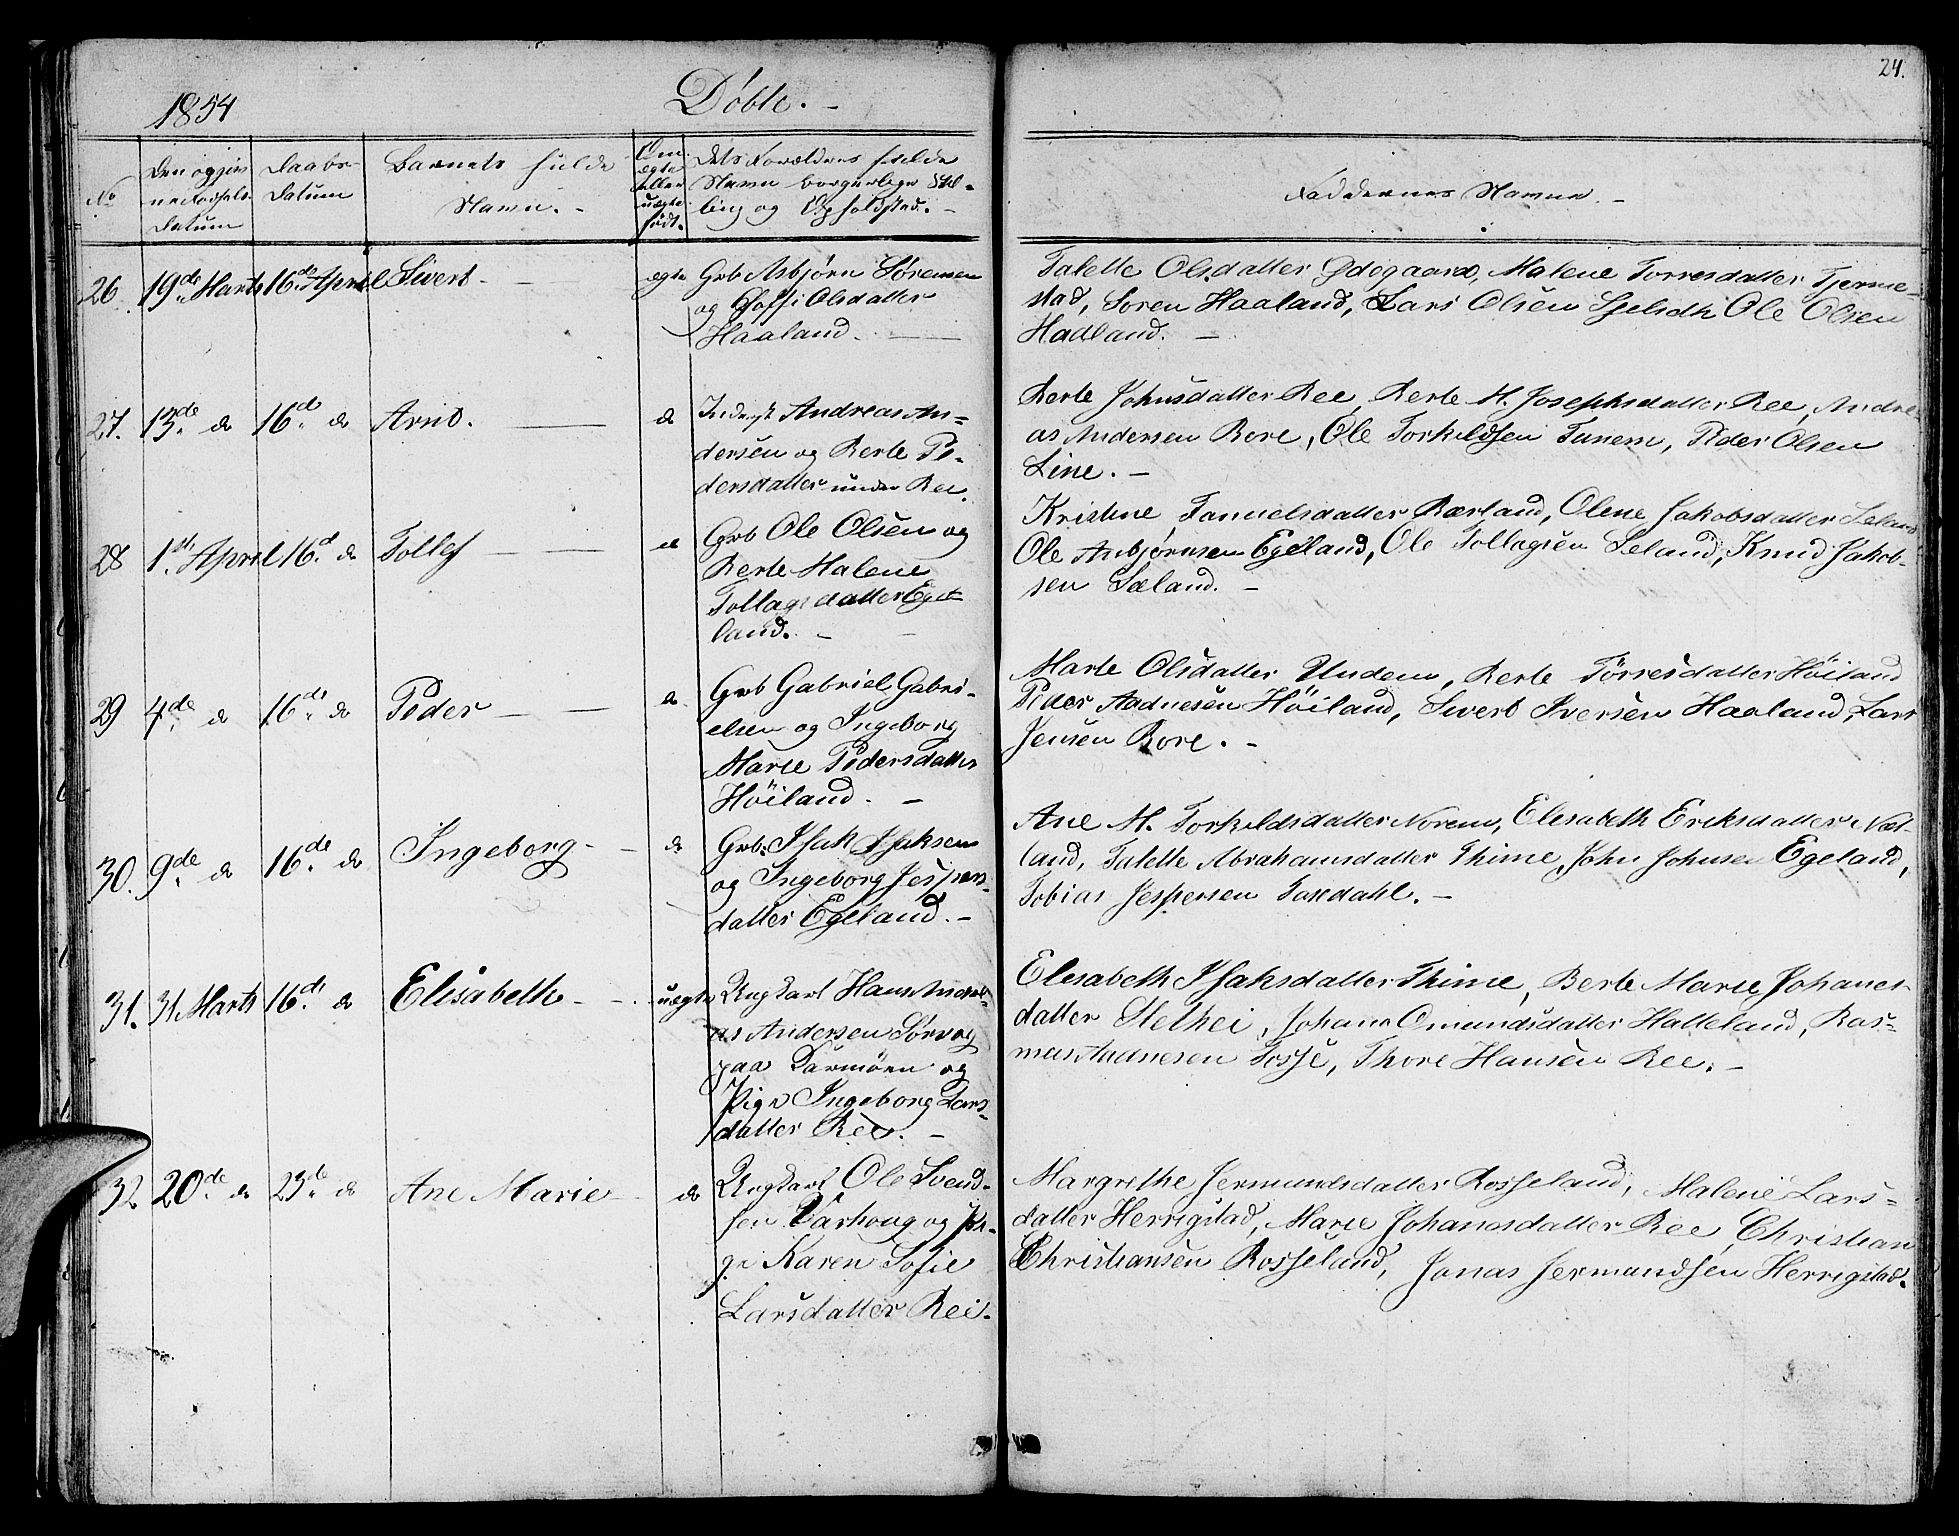 24.
1854
Døbte. -
No
Den opgivne Fødsels Datum
Daabs Datum
Barnets fulde Navn. -
Om ægte eller uægte født.
Dets Forældres fulde Navn borgerlige Stilling og Opholdsted. -
Faddernes Navne. -
26. 19de Marts 16de April Sivert - ægte
Grb Asbjørn Sørensen
og Olsdatter
Haaland.
Talette Olsdatter Ødegaard, Malene Torresdatter Tjerme-
stad, Soren Haaland, Lars Olsen Ole Olsen
Hadland. -
27. 13de do 16de do Arnt. do
Andreas An-
dersen og Berte Pe-
dersdatter under Ree.
Berte Johnsdatter Ree, Berte M. Josephsdatter Ree, Andre-
as Andersen Bore, Ole Torkildsen Tunem, Peder Olsen
Line. -
28 1ste April 16de do Tollef do
Grb Ole Olsen og
Berte Malene
Tollagsdatter Ege-
land. -
Kristine Samuelsdatter Bærland, Olene Jakobsdatter Seland
Ole Asbjørnsen Egeland, Ole Tollagsen Seland, Knud Jakob-
sen Sæland. -
29 4de do 16de do Peder do
Grb Gabriel Gabri-
elsen og Ingeborg
Marie Pedersdatter
Höiland. -
Marte Olsdatter Undem, Berte Törresdatter Höiland
Peder Aadnesen Höiland, Sivert Iversen Haaland, Lars
Jensen Bore. -
30. 9de do 16de do Ingeborg - do
Grb. Isak Isaksen
og Ingeborg Jespers-
datter Egeland. -
Ane M. Torkildsdatter Norem, Elisabeth Eriksdatter Net-
land, Talette Abrahamsdatter Thime, John Johnsen Egeland,
Tobias Jespersen Taxdahl. -
31. 31 Marts 16de do Elisabeth - uægte
Ungkarl Hans Andre-
as Andersen Sørvog
paa Karmøen og
Pige Ingeborg Lars-
datter Ree. -
Elisabeth Isaksdatter Thime, Berte Marie Johanes-
datter Helhei, Johane Omundsdatter Halleland, Ras-
mus Aadnesen Fosse, Thore Hansen Ree. -
32 20de do 23de do Ane Marie do
Ungkarl Ole Svend-
sen Varhoug og Pi-
ge Karen Sofie
Larsdatter Ree.
Margrethe Jermundsdatter Rosseland, Malene Lars-
datter Herrigstad, Marie Johanesdatter Ree, Christian
Christiansen Rosseland, Jonas Jermundsen Herrigstad.